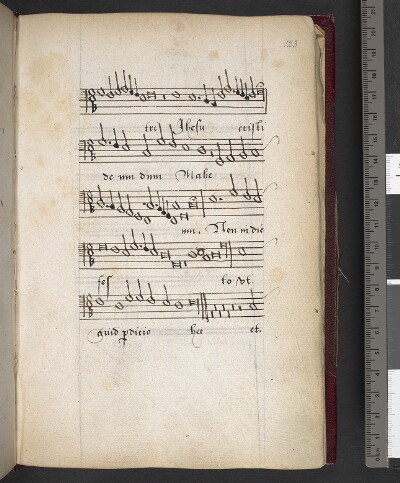 128
tri Jhesu cristi
de mundum Mabe
um. Non in die
fes to Vt
quid perdicio hec et.